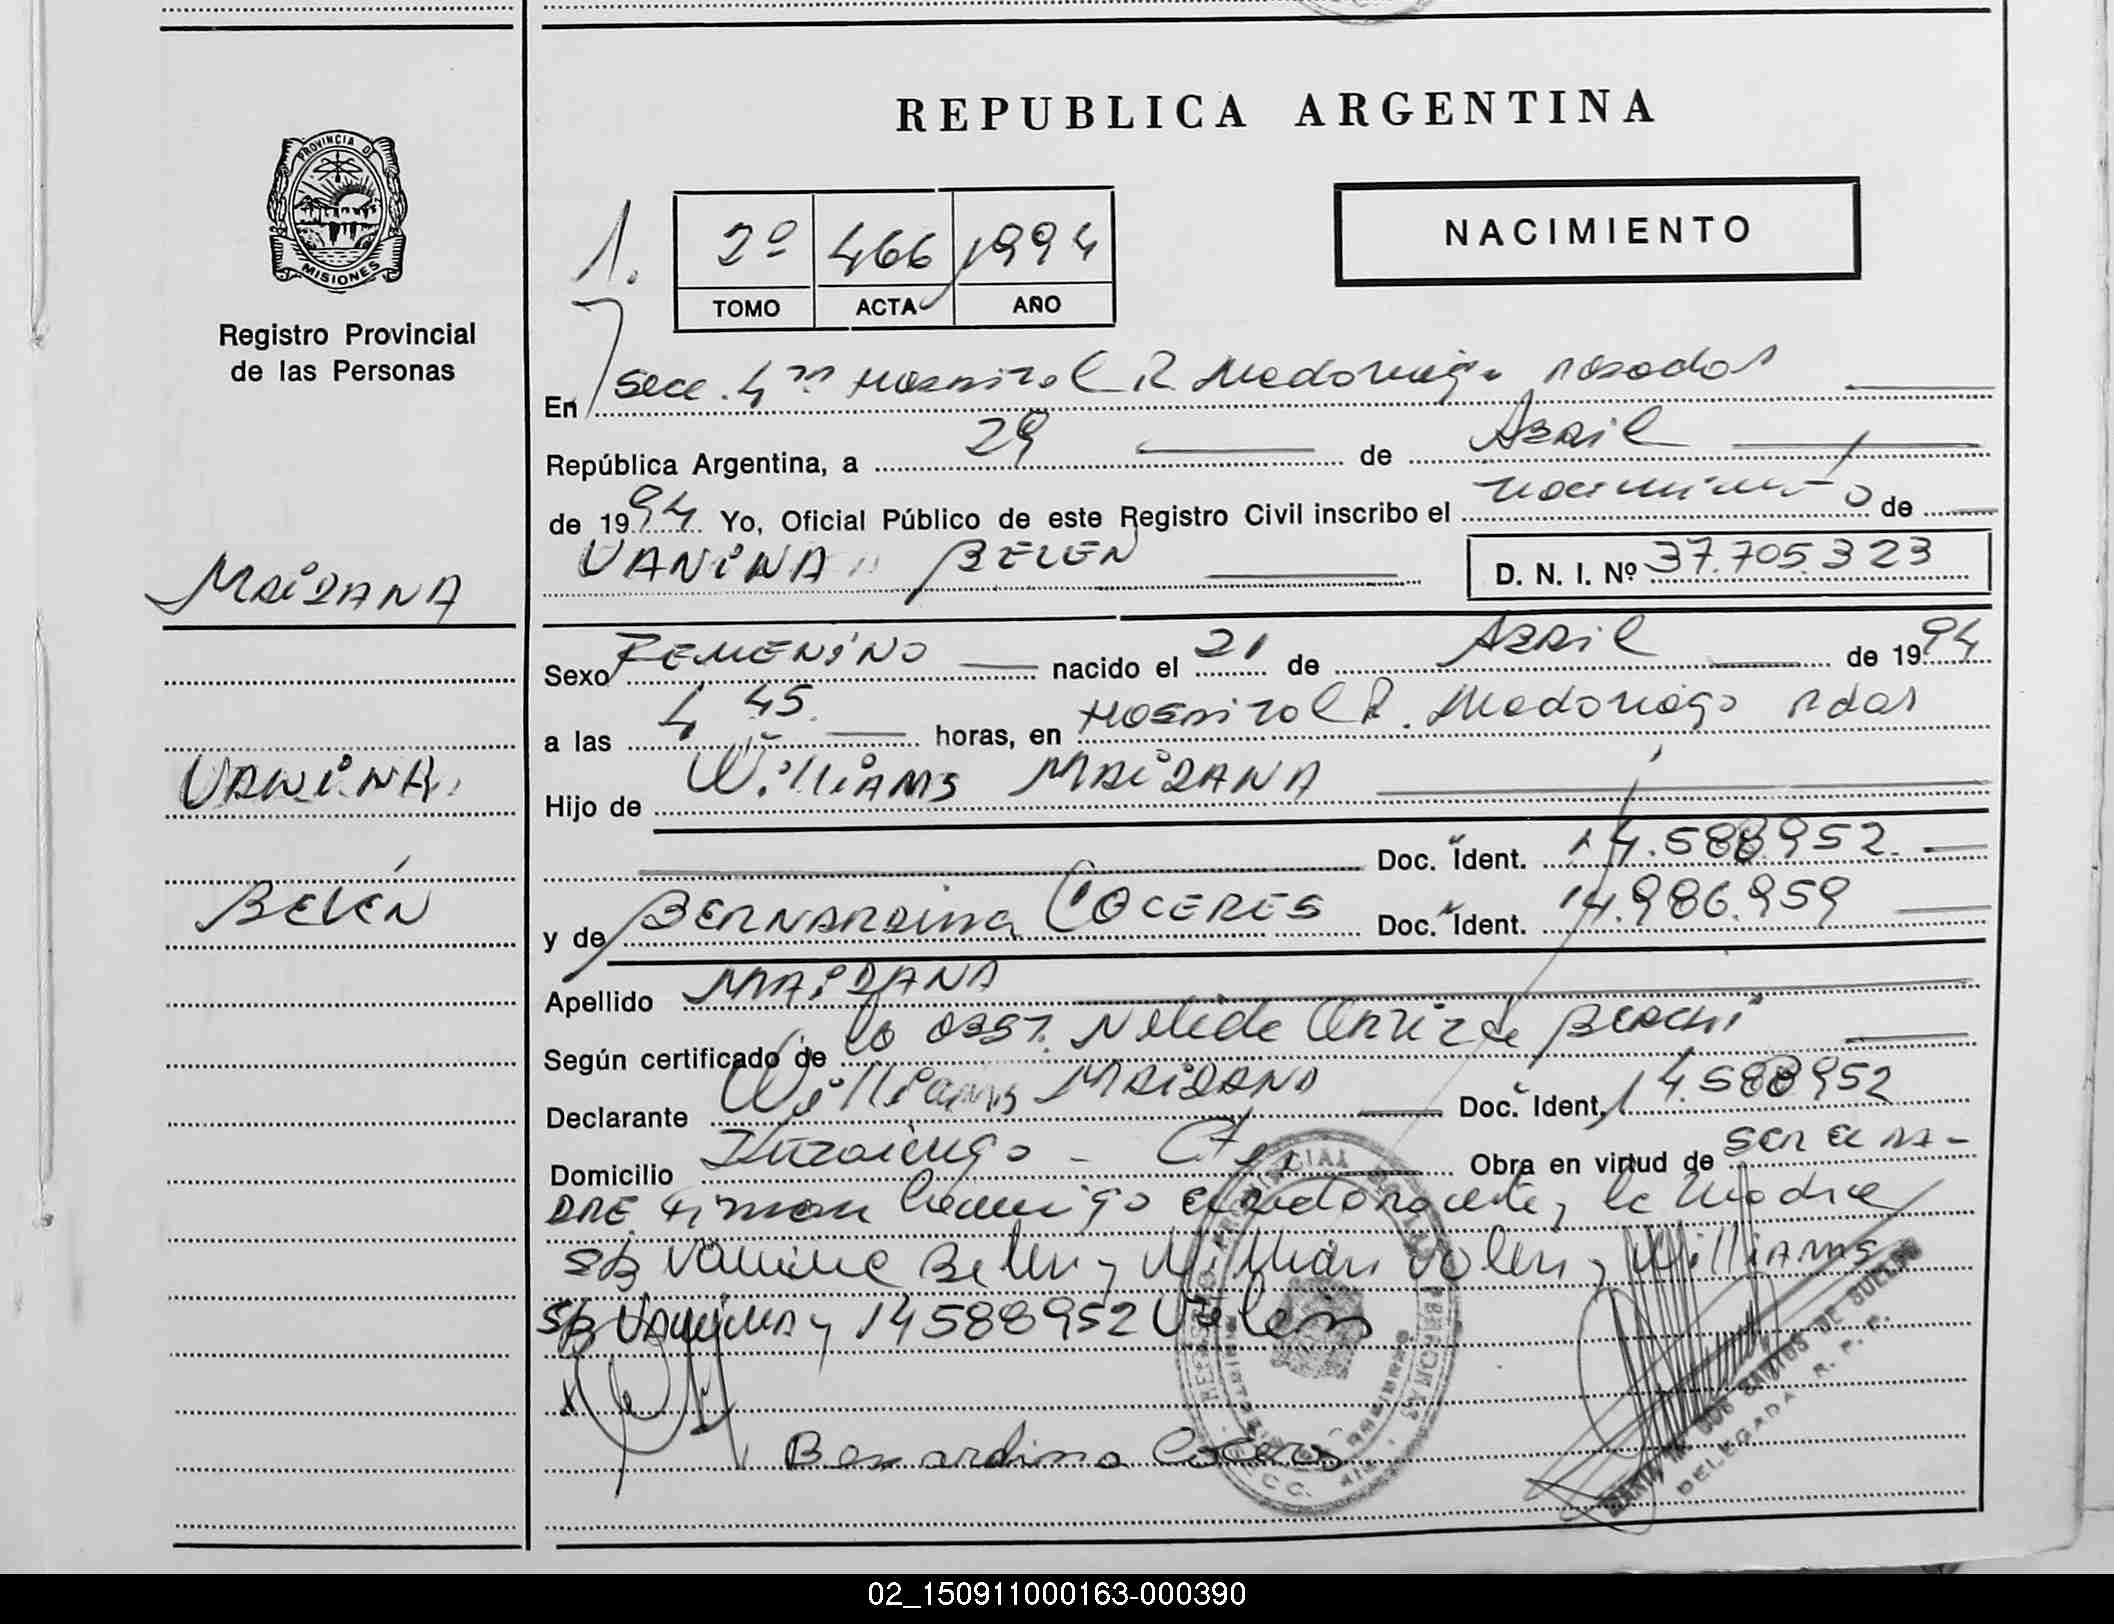 REPUBLICA ARGENTINA
PROVINCIA D
MISIONES
Registro Provincial
de las Personas
1.
2º 466 1994
TOMO ACTA AÑO
NACIMIENTO
En Secc. 4ta Hospital R. Madariaga Posadas
República Argentina, a 29 de Abril
de 1994 Yo, Oficial Público de este Registro Civil inscribo el nacimiento de
VANINA BELEN D. N. I. Nº 37.705.323
MAIDANA
Sexo FEMENINO nacido el 21 de Abril de 1994
a las 4 45 horas, en Hospital R. Madariaga Pdas
VANINA
Hijo de Williams MAIDANA
Doc. Ident. 14.588.952
BELÉN
y de BERNARDINA COCERES Doc. Ident. 14.986.959
Apellido MAIDANA
Según certificado de la obst. Nelida
Declarante Williams MAIDANA Doc. Ident. 14.588952
Domicilio Ituzaingo - Ctes Obra en virtud de ser el PA-
DRE firman conmigo el declarante y la Madre
S/B Vanina Belen y Williams y Williams
S/B VANINA y 14588952 Valen
Bernardina Coceres
DELEGADA R. P. P.
02_150911000163-000390